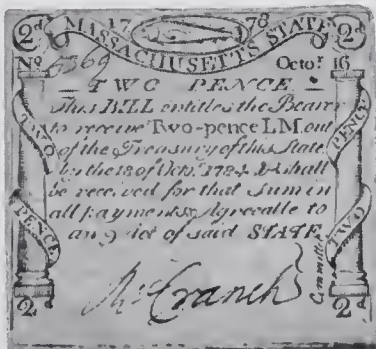 2d 17 78 2d
MASSACHUSETTS STATE
No Octor. 16
TWO PENCE.
This BILL entitles the Bearer
to receive Two-pence LM. out
of the Treasury of this State
by the 18 of Octr. 1784. & shall
be received for that Sum in
all payments Agreeable to
an Act of said STATE
TWO
PENCE
PENCE
TWO
Rd. Cranch
Committee
2d 2d